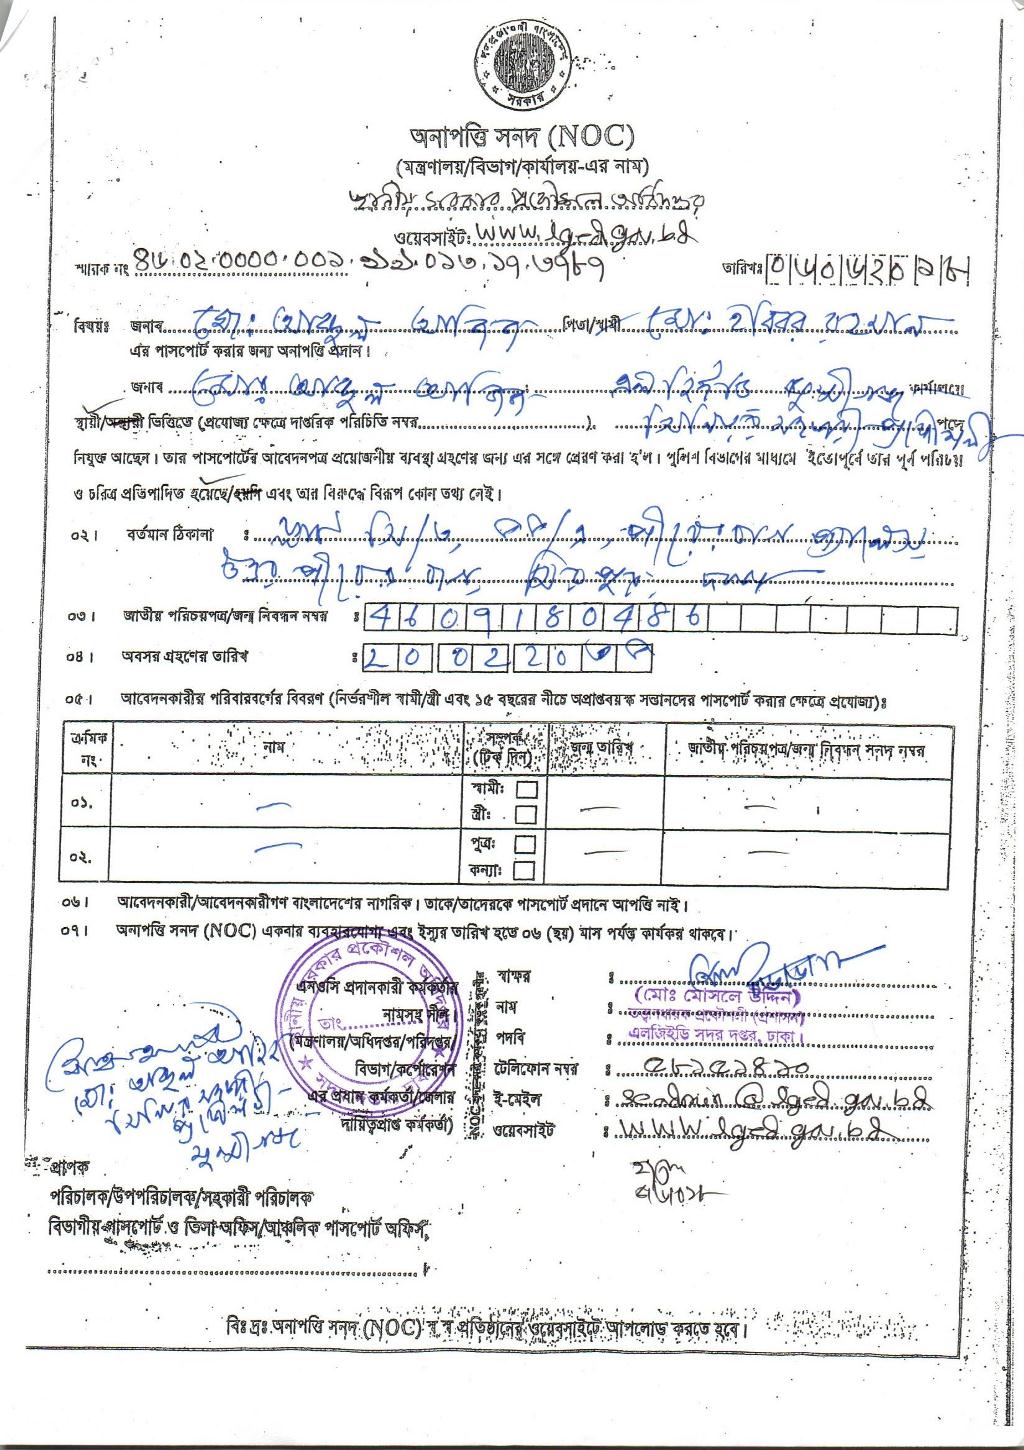 গণপ্রজাতন্ত্রী বাংলাদেশ
সরকার
অনাপত্তি সনদ (NOC)
(মন্ত্রণালয়/বিভাগ/কার্যালয়-এর নাম)
স্থানীয় সরকার প্রকৌশল অধিদপ্তর
ওয়েবসাইট: www.lged.gov.bd
স্মারক নং ৪৬.০২.০০০০.০০১.
তারিখঃ
বিষয়ঃ জনাব মোঃ আব্দুল পিতা/স্বামী মোঃ হবিবর রহমান
এর পাসপোর্ট করার জন্য অনাপত্তি প্রদান।
জনাব মোঃ আব্দুল এলজিইডি মুন্সীগঞ্জ কার্যালয়ে
স্থায়ী/অস্থায়ী ভিত্তিতে (প্রযোজ্য ক্ষেত্রে দাপ্তরিক পরিচিতি নম্বর). সিনিয়র সহকারী প্রকৌশলী পদে
নিযুক্ত আছেন। তার পাসপোর্টের আবেদনপত্র প্রয়োজনীয় ব্যবস্থা গ্রহণের জন্য এর সঙ্গে প্রেরণ করা হ'ল। পুলিশ বিভাগের মাধ্যমে ইতোপূর্বে তার পূর্ব পরিচয়
ও চরিত্র প্রতিপাদিত হয়েছে/হয়নি এবং তার বিরুদ্ধে বিরূপ কোন তথ্য নেই।
০২। বর্তমান ঠিকানা : পীরেরবাগ
উত্তর পীরের বাগ, মিরপুর, ঢাকা
০৩। জাতীয় পরিচয়পত্র/জন্ম নিবন্ধন নম্বর : 4609180486
০৪। অবসর গ্রহণের তারিখ : 200220
০৫। আবেদনকারীর পরিবারবর্গের বিবরণ (নির্ভরশীল স্বামী/স্ত্রী এবং ১৫ বছরের নীচে অপ্রাপ্তবয়স্ক সন্তানদের পাসপোর্ট করার ক্ষেত্রে প্রযোজ্য)ঃ
ক্রমিক নং নাম সম্পর্ক (টিক দিন) জন্ম তারিখ জাতীয় পরিচয়পত্র/জন্ম নিবন্ধন সনদ নম্বর
০১. — স্বামীঃ — —
স্ত্রীঃ
০২. — পুত্রঃ — —
কন্যাঃ
০৬। আবেদনকারী/আবেদনকারীগণ বাংলাদেশের নাগরিক। তাকে/তাদেরকে পাসপোর্ট প্রদানে আপত্তি নাই।
০৭। অনাপত্তি সনদ (NOC) একবার ব্যবহারযোগ্য এবং ইস্যুর তারিখ হতে ০৬ (ছয়) মাস পর্যন্ত কার্যকর থাকবে।
স্থানীয় সরকার প্রকৌশল অধিদপ্তর
তাং
এনওসি প্রদানকারী কর্মকর্তার
নামসহ সীল।
(মন্ত্রণালয়/অধিদপ্তর/পরিদপ্তর/
বিভাগ/কর্পোরেশন
এর প্রধান কর্মকর্তা/জেলার
দায়িত্বপ্রাপ্ত কর্মকর্তা)
স্বাক্ষর :
নাম : (মোঃ মোসলে উদ্দিন)
তত্ত্বাবধায়ক প্রকৌশলী (প্রশাসন)
পদবি : এলজিইডি সদর দপ্তর, ঢাকা।
টেলিফোন নম্বর :
ই-মেইল : seadmin@lged.gov.bd
ওয়েবসাইট : www.lged.gov.bd
সিনিয়র সহকারী
প্রকৌশলী
মুন্সীগঞ্জ
প্রাপক
পরিচালক/উপপরিচালক/সহকারী পরিচালক
বিভাগীয় পাসপোর্ট ও ভিসা অফিস/আঞ্চলিক পাসপোর্ট অফিস,
বিঃ দ্রঃ অনাপত্তি সনদ (NOC) স্ব স্ব প্রতিষ্ঠানের ওয়েবসাইটে আপলোড করতে হবে।